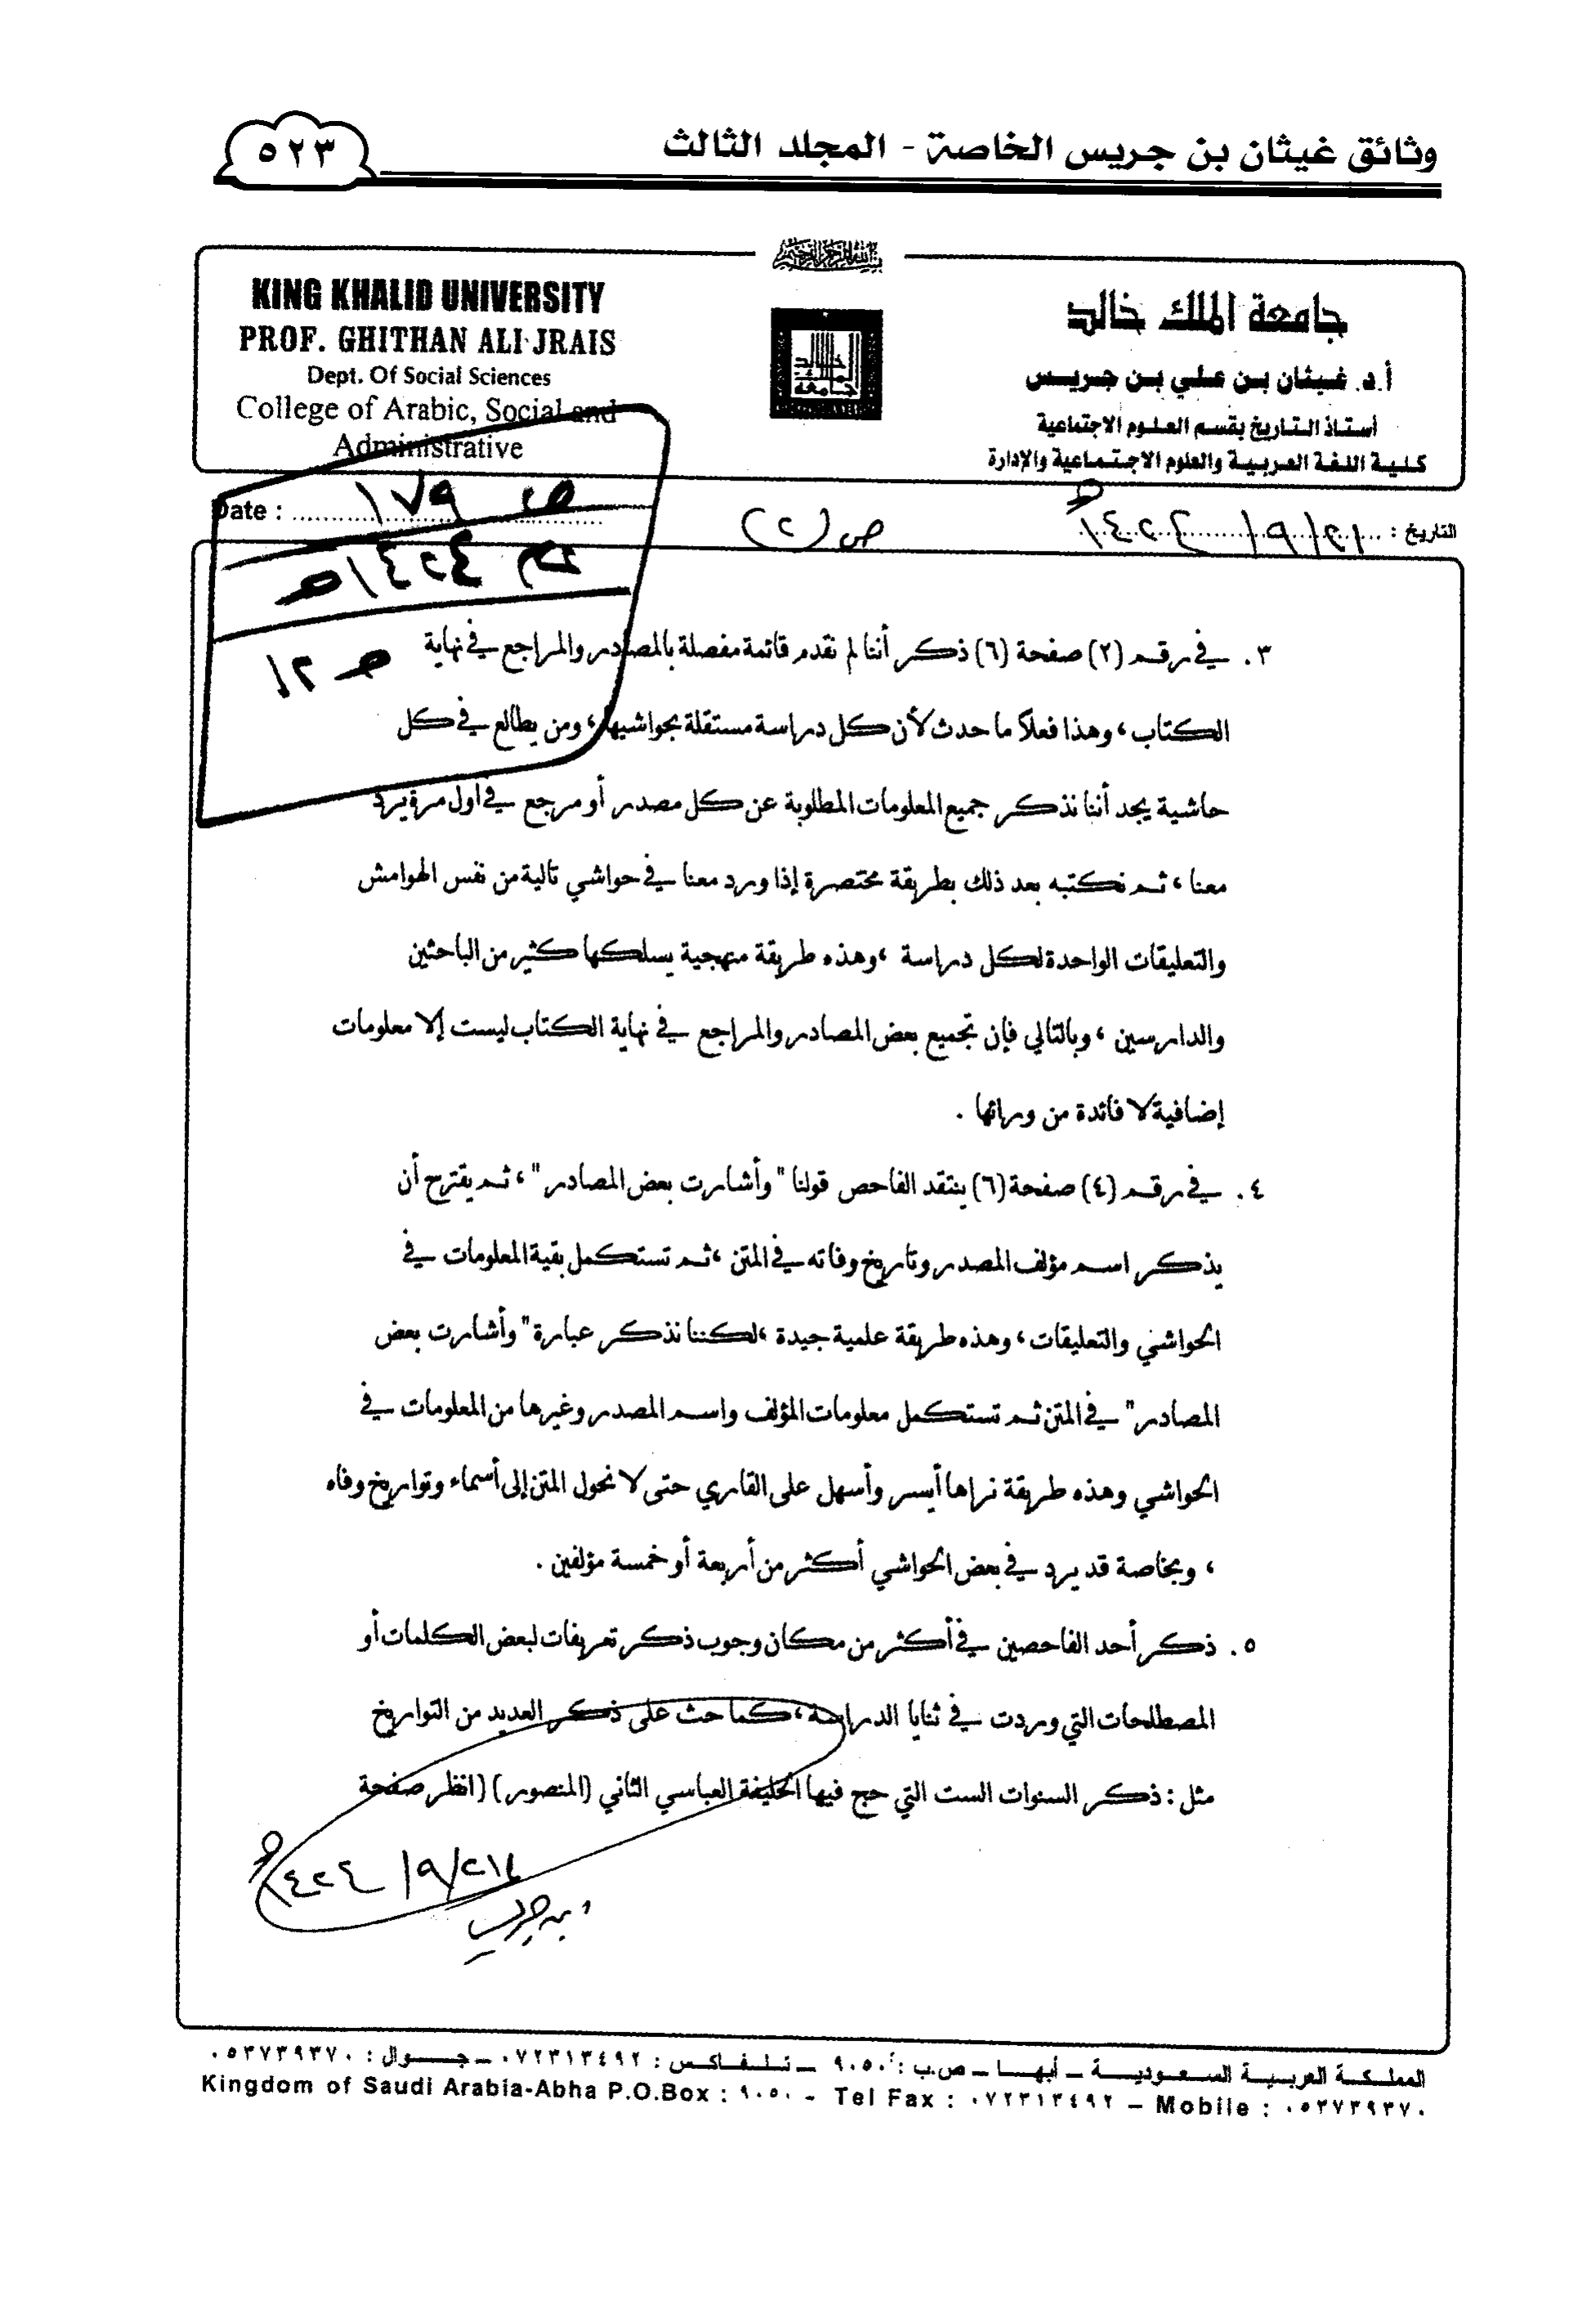 وثائق غيثان بن جريس الخاصة - المجلد الثالث
٥٢٣
بسم الله الرحمن الرحيم
جامعة الملك خالد
أ.د. غيثان بن علي بن جريس
أستاذ التاريخ بقسم العلوم الاجتماعية
كلية اللغة العربية والعلوم الاجتماعية والإدارة
KING KHALID UNIVERSITY
PROF. GHITHAN ALI JRAIS
Dept. Of Social Sciences
College of Arabic, Social and
Administrative
جامعة الملك خالد
التاريخ : ٢١/٩/١٤٢٤هـ
ص (٢)
Date :
ص ١٧٩
١٤٢٤هـ
٣. في رقم (٢) صفحة (٦) ذكر أننا لم نقدم قائمة مفصلة بالمصادر والمراجع في نهاية
الكتاب ، وهذا فعلاً ما حدث لأن كل دراسة مستقلة بحواشيها ، ومن يطالع في كل
حاشية يجد أننا نذكر جميع المعلومات المطلوبة عن كل مصدر أو مرجع في أول مرة يرد
معنا ، ثم نكتبه بعد ذلك بطريقة مختصرة إذا ورد معنا في حواشي تالية من نفس الهوامش
والتعليقات الواحدة لكل دراسة ، وهذه طريقة منهجية يسلكها كثير من الباحثين
والدارسين ، وبالتالي فإن تجميع بعض المصادر والمراجع في نهاية الكتاب ليست إلا معلومات
إضافية لا فائدة من ورائها .
٤. في رقم (٤) صفحة (٦) ينتقد الفاحص قولنا " وأشارت بعض المصادر" ، ثم يقترح أن
يذكر اسم مؤلف المصدر وتاريخ وفاته في المتن ، ثم تستكمل بقية المعلومات في
الحواشي والتعليقات ، وهذه طريقة علمية جيدة ، لكننا نذكر عبارة " وأشارت بعض
المصادر" في المتن ثم تستكمل معلومات المؤلف واسم المصدر وغيرها من المعلومات في
الحواشي وهذه طريقة نراها أيسر وأسهل على القاري حتى لا نحول المتن إلى أسماء وتواريخ وفاه
، وبخاصة قد يرد في بعض الحواشي أكثر من أربعة أو خمسة مؤلفين .
٥. ذكر أحد الفاحصين في أكثر من مكان وجوب ذكر تعريفات لبعض الكلمات أو
المصطلحات التي وردت في ثنايا الدراسة ، كما حث على ذكر العديد من التواريخ
مثل : ذكر السنوات الست التي حج فيها الخليفة العباسي الثاني (المنصور) (انظر صفحة
٢١/٩/١٤٢٤هـ
ابن جريس
المملكة العربية السعودية – أبها – ص.ب : ٩٠٥٠ – تلفاكس : ٠٧٢٣١٣٤٩٢ – جوال : ٠٥٣٧٣٩٣٧٠
Kingdom of Saudi Arabia-Abha P.O.Box : ٩٠٥٠ - Tel Fax : ٠٧٢٣١٣٤٩٢ – Mobile : ٠٥٣٧٣٩٣٧٠